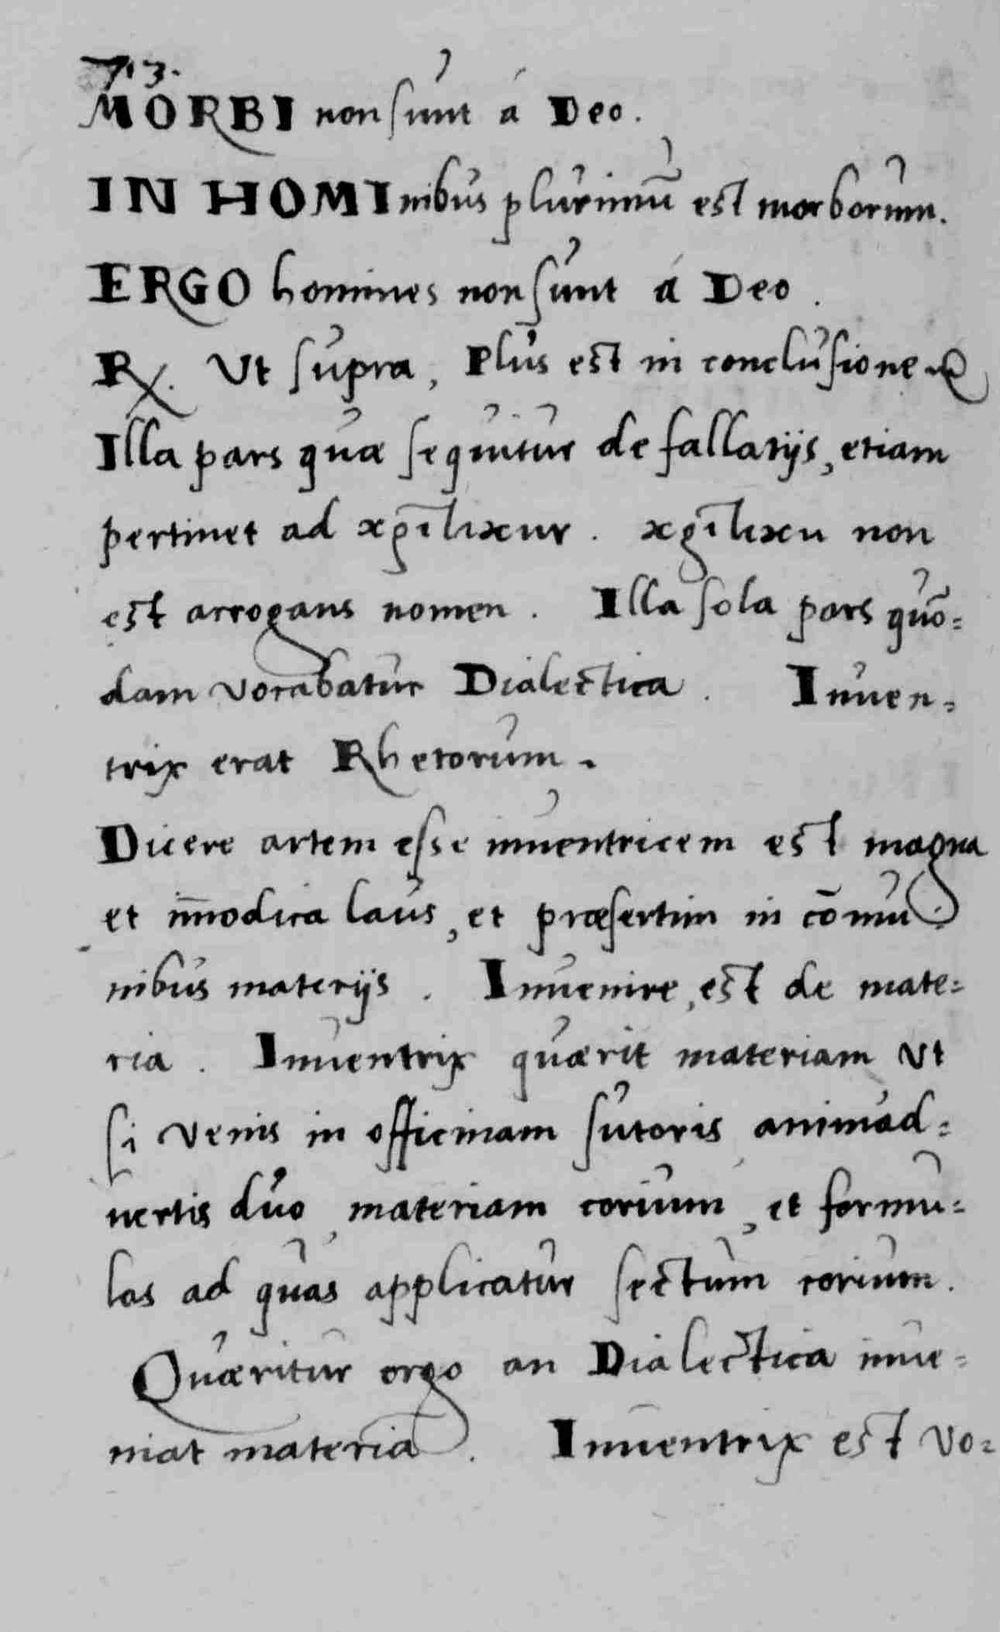 713.
MORBI non sunt á Deo.
IN HOMInibus plurimū est morborum.
ERGO homines non sunt á Deo.
R. Ut supra, Plus est in conclusione
Illa pars quæ sequitur de fallatijs, etiam
pertinet ad . non
est arrogans nomen. Illa sola pars quō=
dam vocabatur Dialectica. Inuen=
trix erat Rhetorum.
Dicere artem esse inuentricem est magna
et im̄odica laus, et præsertim in cōmu
nibus materijs. Inuenire, est de mate=
ria. Inuentrix quærit materiam ut
si venis in officinam sutoris animad=
uertis duo materiam corium, et formu=
las ad quas applicatur sectum corium.
Quæritur ergo an Dialectica inue=
niat materiā. Inuentrix est vo=